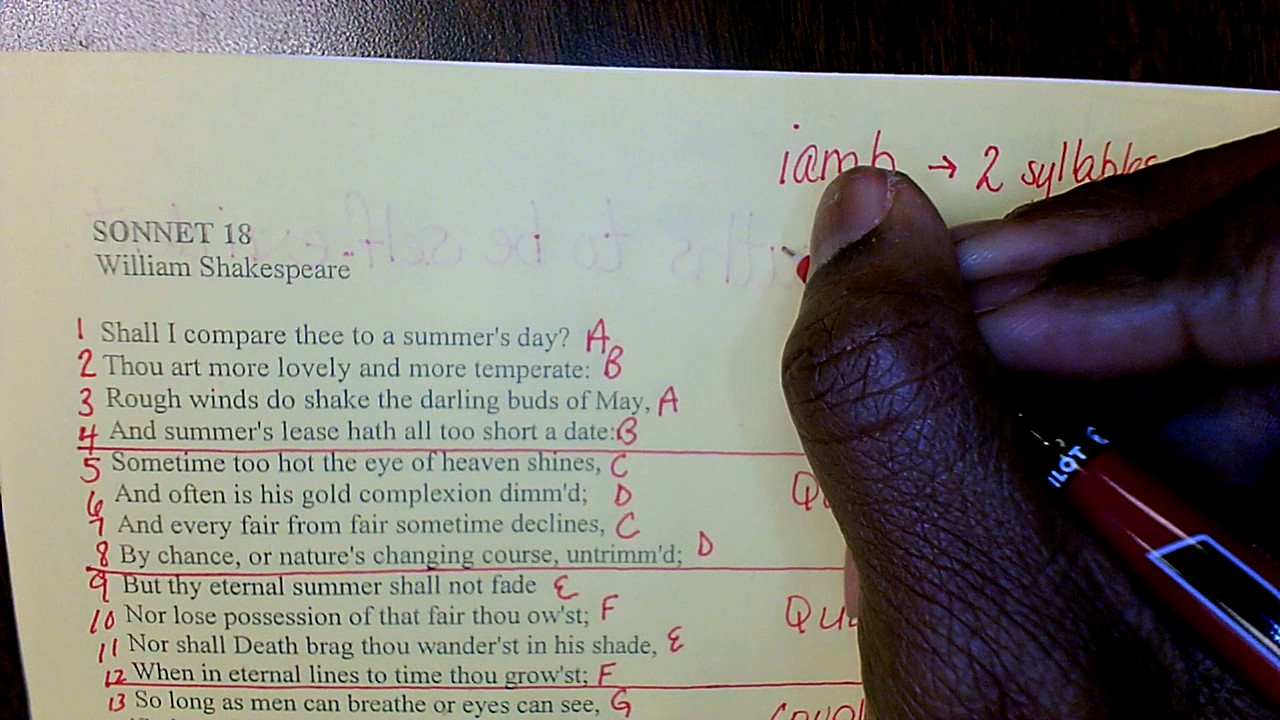 iamb → 2 syllables
SONNET 18
William Shakespeare
1 Shall I compare thee to a summer's day? A
2 Thou art more lovely and more temperate: B
3 Rough winds do shake the darling buds of May, A
4 And summer's lease hath all too short a date: B
5 Sometime too hot the eye of heaven shines, C
6 And often is his gold complexion dimm'd; D
7 And every fair from fair sometime declines, C
8 By chance, or nature's changing course, untrimm'd; D
9 But thy eternal summer shall not fade E
10 Nor lose possession of that fair thou ow'st; F
11 Nor shall Death brag thou wander'st in his shade, E
12 When in eternal lines to time thou grow'st; F
13 So long as men can breathe or eyes can see, G